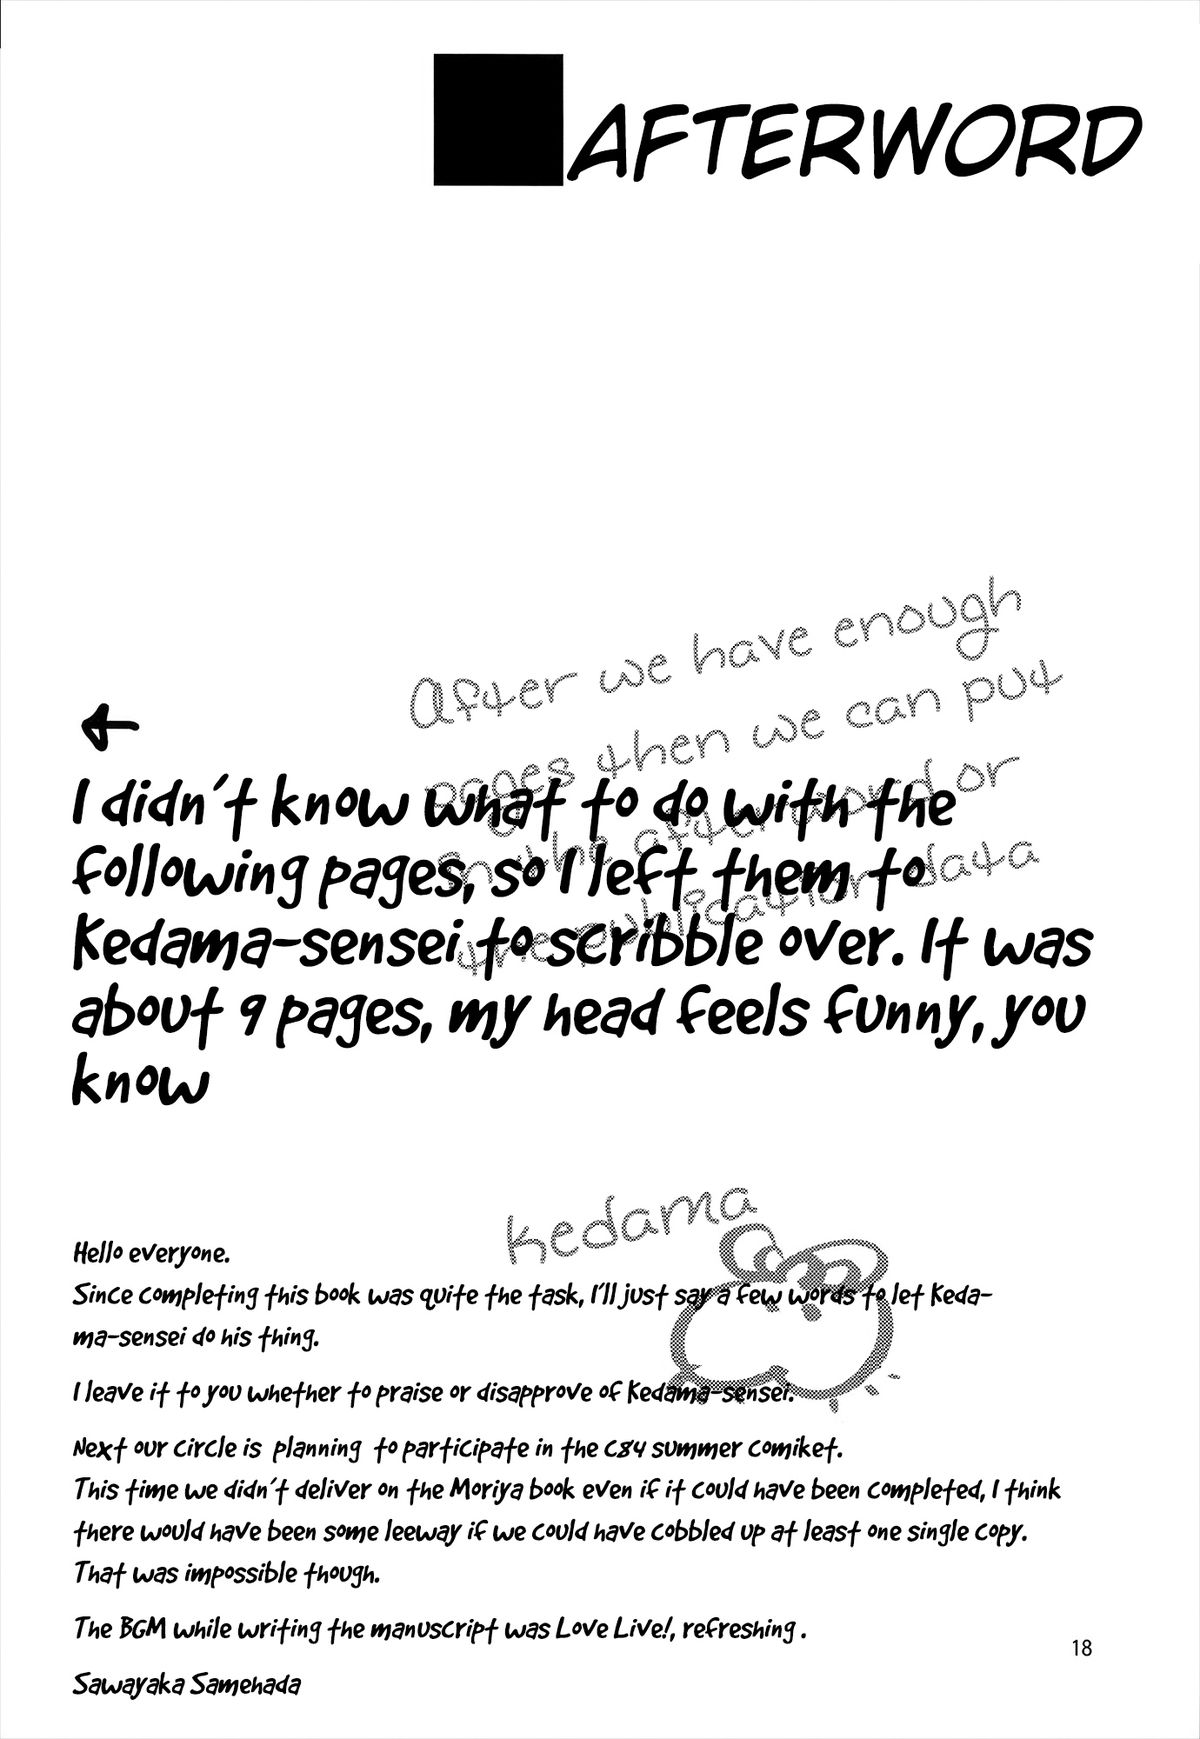 AFTERWORD
After we have enough
pages then we can put
in the afterword or
the publication data
←
I didn't know what to do with the
following pages, so I left them to
Kedama-sensei to scribble over. It was
about 9 pages, my head feels funny, you
know
kedama
Hello everyone.
Since completing this book was quite the task, I'll just say a few words to let Keda-
ma-sensei do his thing.
I leave it to you whether to praise or disapprove of Kedama-sensei.
Next our circle is planning to participate in the C84 summer comiket.
This time we didn't deliver on the Moriya book even if it could have been completed, I think
there would have been some leeway if we could have cobbled up at least one single copy.
That was impossible though.
The BGM while writing the manuscript was Love Live!, refreshing.
Sawayaka Samehada
18